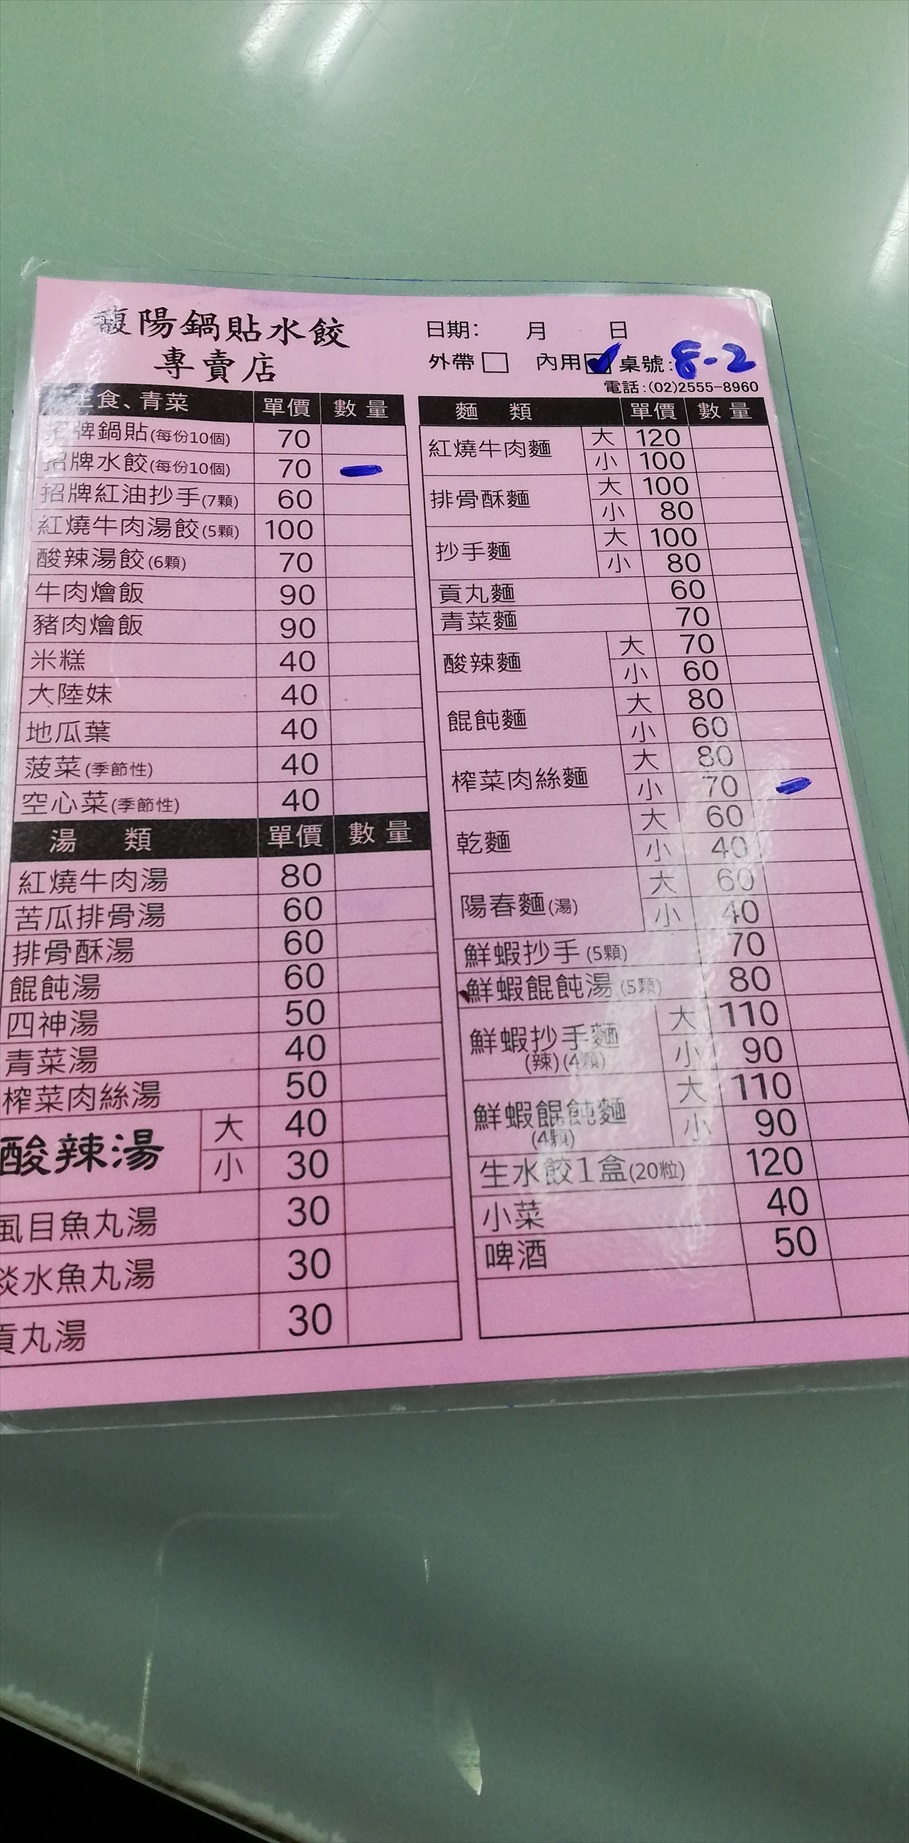 馥陽鍋貼水餃
專賣店
日期: 月 日
外帶 內用 桌號:8-2
電話:(02)2555-8960
主食、青菜 單價 數量
招牌鍋貼(每份10個) 70
招牌水餃(每份10個) 70 一
招牌紅油抄手(7顆) 60
紅燒牛肉湯餃(5顆) 100
酸辣湯餃(6顆) 70
牛肉燴飯 90
豬肉燴飯 90
米糕 40
大陸妹 40
地瓜葉 40
菠菜(季節性) 40
空心菜(季節性) 40
湯 類 單價 數量
紅燒牛肉湯 80
苦瓜排骨湯 60
排骨酥湯 60
餛飩湯 60
四神湯 50
青菜湯 40
榨菜肉絲湯 50
酸辣湯 大 40
小 30
虱目魚丸湯 30
淡水魚丸湯 30
貢丸湯 30
麵 類 單價 數量
紅燒牛肉麵 大 120
小 100
排骨酥麵 大 100
小 80
抄手麵 大 100
小 80
貢丸麵 60
青菜麵 70
酸辣麵 大 70
小 60
餛飩麵 大 80
小 60
榨菜肉絲麵 大 80
小 70 一
乾麵 大 60
小 40
陽春麵(湯) 大 60
小 40
鮮蝦抄手(5顆) 70
鮮蝦餛飩湯(5顆) 80
鮮蝦抄手麵 大 110
(辣)(4顆) 小 90
鮮蝦餛飩麵 大 110
(4顆) 小 90
生水餃1盒(20粒) 120
小菜 40
啤酒 50